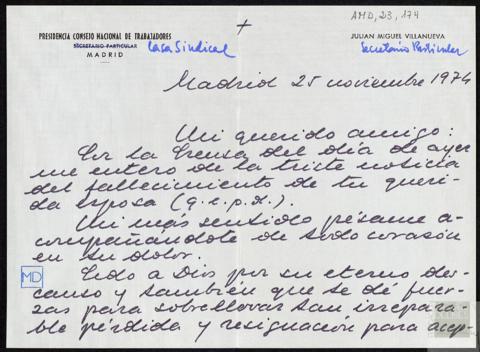 AMD, 23, 174
PRESIDENCIA CONSEJO NACIONAL DE TRABAJADORES
SECRETARIO PARTICULAR
Casa Sindical
MADRID
JULIAN MIGUEL VILLANUEVA
Secretario Particular
Madrid 25 noviembre 1974
Mi querido amigo:
Por la Prensa del día de ayer
me entero de la triste noticia
del fallecimiento de tu queri-
da esposa (q.e.p.d.).
Mi más sentido pésame a-
compañándote de todo corazón
en tu dolor.
MD
Pido a Dios por su eterno des-
canso y también que te dé fuer-
zas para sobrellevar tan irrepara-
ble pérdida y resignación para acep-